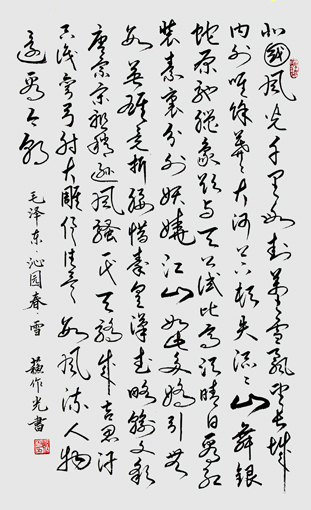 北國風光千里冰封萬里雪飄望長城
内外唯餘莽莽大河上下頓失滔滔山舞銀
蛇原馳蠟象欲与天公試比高須晴日看紅
装素裹分外妖嬈江山如此多嬌引無
數英雄竞折腰惜秦皇漢武略輸文彩
唐宗宋祖稍遜風騷一代天驕成吉思汗
只識彎弓射大雕俱往矣數風流人物
還看今朝
毛泽東·沁园春·雪 蘇作光書